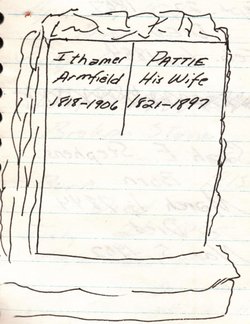 Ithamer
Armfield
1818-1906
PATTIE
His Wife
1821-1897